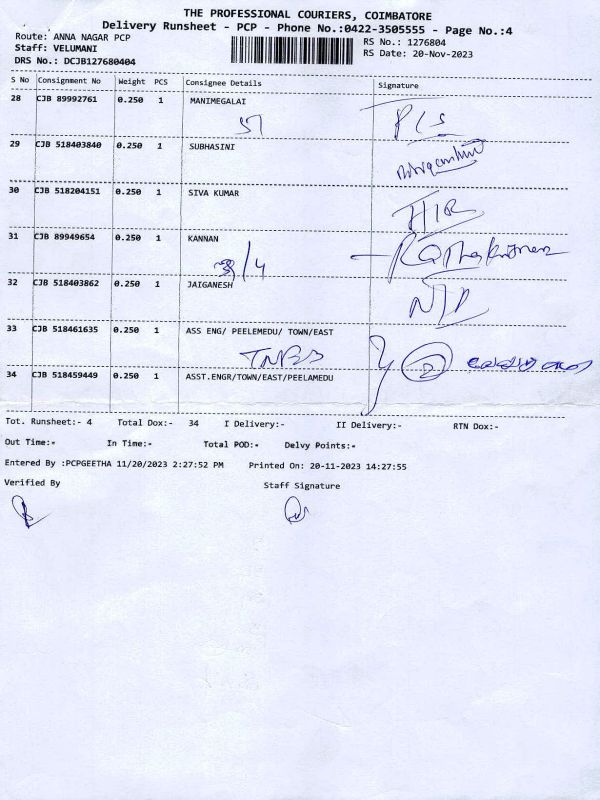 THE PROFESSIONAL COURIERS, COIMBATORE
Delivery Runsheet - PCP - Phone No.:0422-3505555 - Page No.:4
Route: ANNA NAGAR PCP
RS No.: 1276804
Staff: VELUMANI
RS Date: 20-Nov-2023
DRS No.: DCJB127680404
S No Consignment No Weight PCS Consignee Details Signature
28 CJB 89992761 0.250 1 MANIMEGALAI
29 CJB 518403840 0.250 1 SUBHASINI
30 CJB 518204151 0.250 1 SIVA KUMAR
31 CJB 89949654 0.250 1 KANNAN
32 CJB 518403862 0.250 1 JAIGANESH
33 CJB 518461635 0.250 1 ASS ENG/ PEELEMEDU/ TOWN/EAST
2
34 CJB 518459449 0.250 1 ASST.ENGR/TOWN/EAST/PEELAMEDU
Tot. Runsheet:- 4 Total Dox:- 34 I Delivery:- II Delivery:- RTN Dox:-
Out Time:- In Time:- Total POD:- Delvy Points:-
Entered By :PCPGEETHA 11/20/2023 2:27:52 PM Printed On: 20-11-2023 14:27:55
Verified By Staff Signature